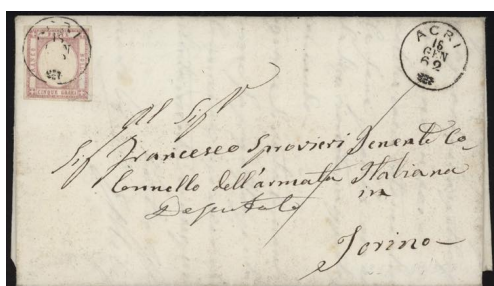 ACRI
ACRI
16
GEN
2
CINQUE GRANA
Al Sigr
Sigr Francesco Sprovieri Tenente Co-
lonnello dell'armata Italiana
Deputato in
Torino